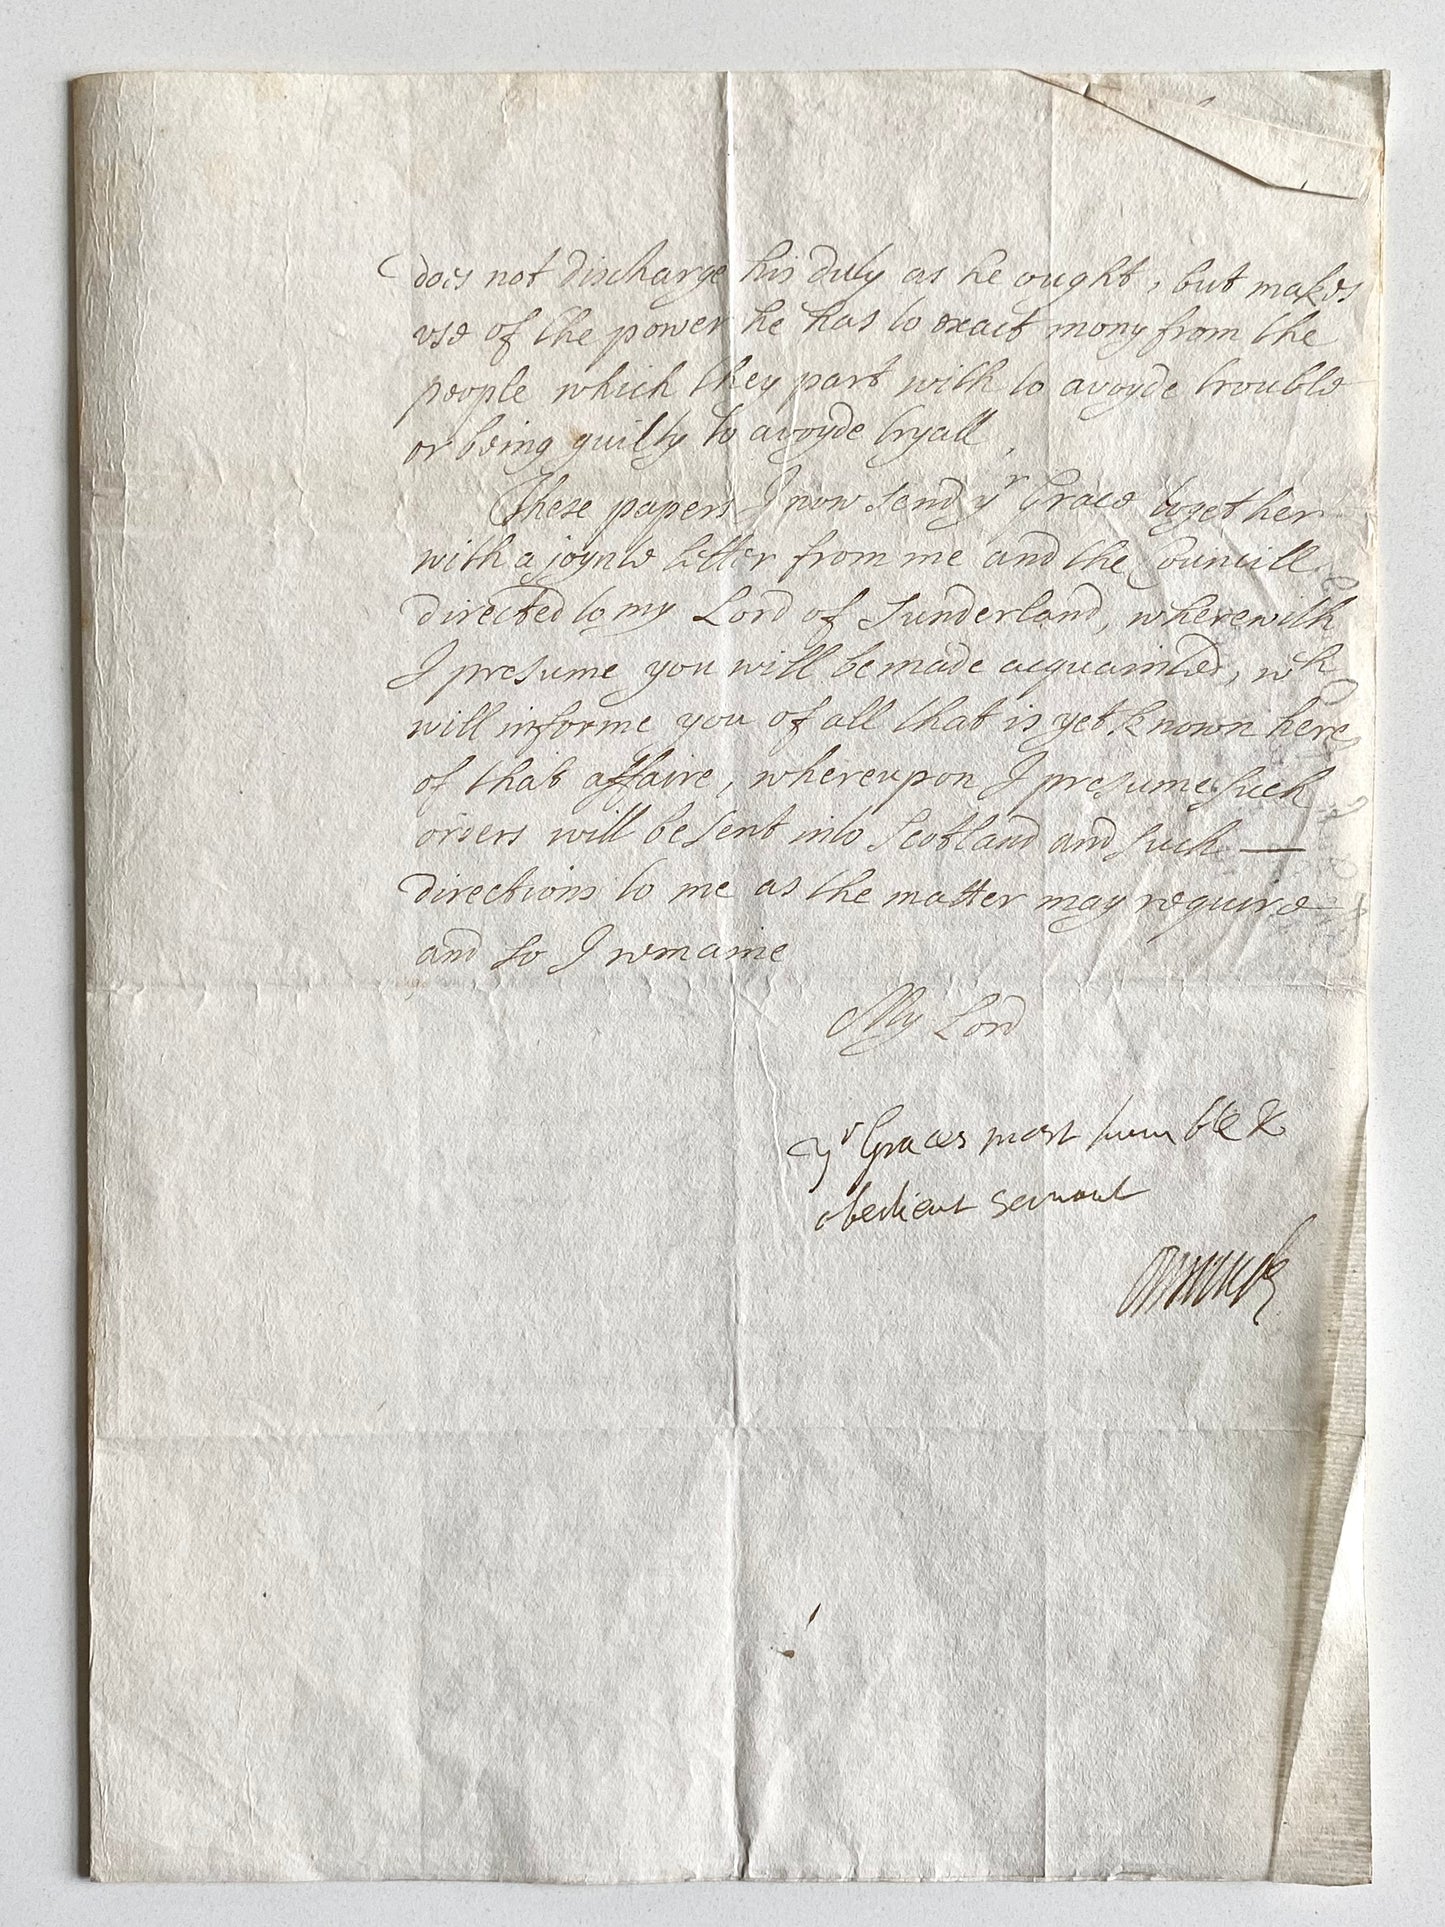 does not discharge his duty as he ought, but makes
use of the power he has to exact mony from the
people which they part with to avoyde trouble
or being guilty to avoyde tryall,
These papers I now send yr Grace together
with a joynte letter from me and the Councill
directed to my Lord of Sunderland, wherewith
I presume you will be made acquainted, wch
will informe you of all that is yet known here
of that affaire, whereupon I presume such
orders will be sent into Scotland and such —
directions to me as the matter may require
and so I remaine
My Lord
yr Graces most humble &
obedient servant
Ormonde